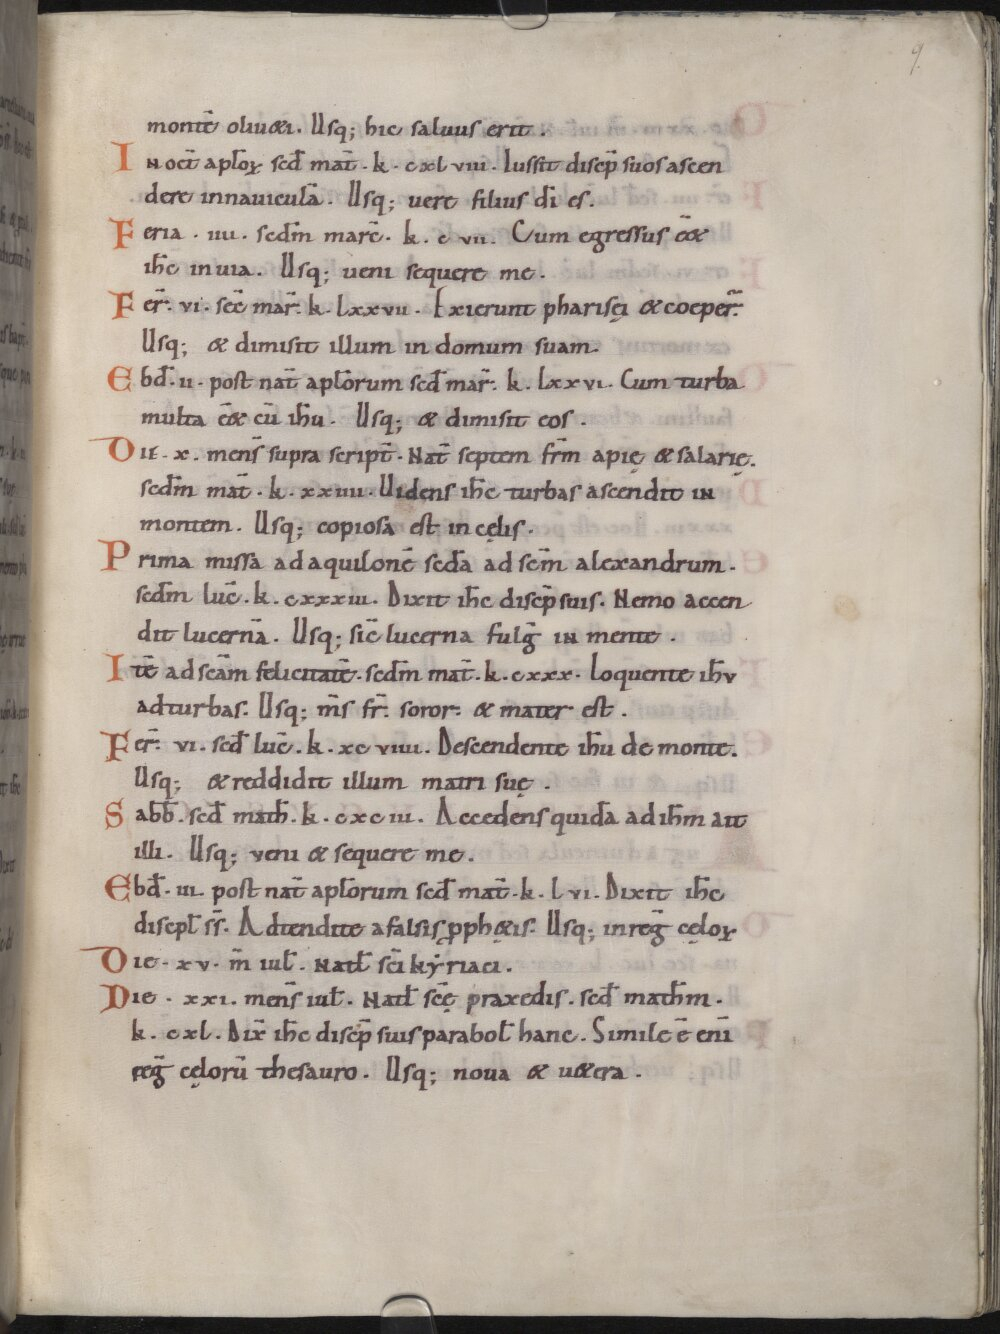 9
montē oliu&i. Usq; hic saluus erit.
In oct̄ apl̄oꝝ sed̄ mat̄. k. cxlviii. Iussit discip̄ suos ascen
dere innauiculā. Usq; uere filius dī es.
Feria. iiii. sedm̄ marc̄. k. cvii. Cum egressus ē&
ih̄c inuia. Usq; ueni sequere me.
Fer̄. vi. sec̄ mar̄. k. lxxvii. Exierunt pharisęi & coeper̄
Usq; & dimisit illum in domum suam.
Ebd̄. ii. post nat̄ apl̄orum sed̄ mar̄. k. lxxvi. Cum turba
multa ē& cū ih̄u. Usq; & dimisit eos.
Die. x. mens̄ supra script̄. Nat̄ septem fr̄m apię & salarię.
sedm̄ mat̄. k. xxiiii. Uidens ih̄c turbas ascendit in
montem. Usq; copiosa est in cęlis.
Prima missa ad aquilonē sedā ad scm̄ alexandrum.
sedm̄ luc̄. k. cxxxiii. Dixit ih̄c discip̄ suis. Nemo accen
dit lucernā. Usq; sic̄ lucerna fulḡ in mente.
Itē ad scām felicitatē. sedm̄ mat̄. k. cxxx. Loquente ih̄u
adturbas. Usq; m̄s fr̄. soror. & mater est.
Fer̄. vi. sed̄ luc̄. k. xcviiii. Descendente ih̄u de monte.
Usq; & reddidit illum matri suę.
Sabb̄. sed̄ math̄. k. cxciii. Accedens quidā ad ih̄m ait
illi. Usq; veni & sequere me.
Ebd̄. iii. post nat̄ apl̄orum sed̄ mat̄. k. lvi. Dixit ih̄c
discipl̄ ss̄. Adtendite afalsis ꝓph&is. Usq; inreḡ cęloꝝ
Die. xv. m̄ iul̄. Natl̄ sc̄i kẏriaci.
Die. xxi. mens̄ iul̄. Natl̄ sc̄ę praxedis. sed̄ mathm̄.
k. cxl. Dix̄ ih̄c discip̄ suis parabol̄ hanc. Simile ē enī
reḡ cęlorū thesauro. Usq; noua & u&era.